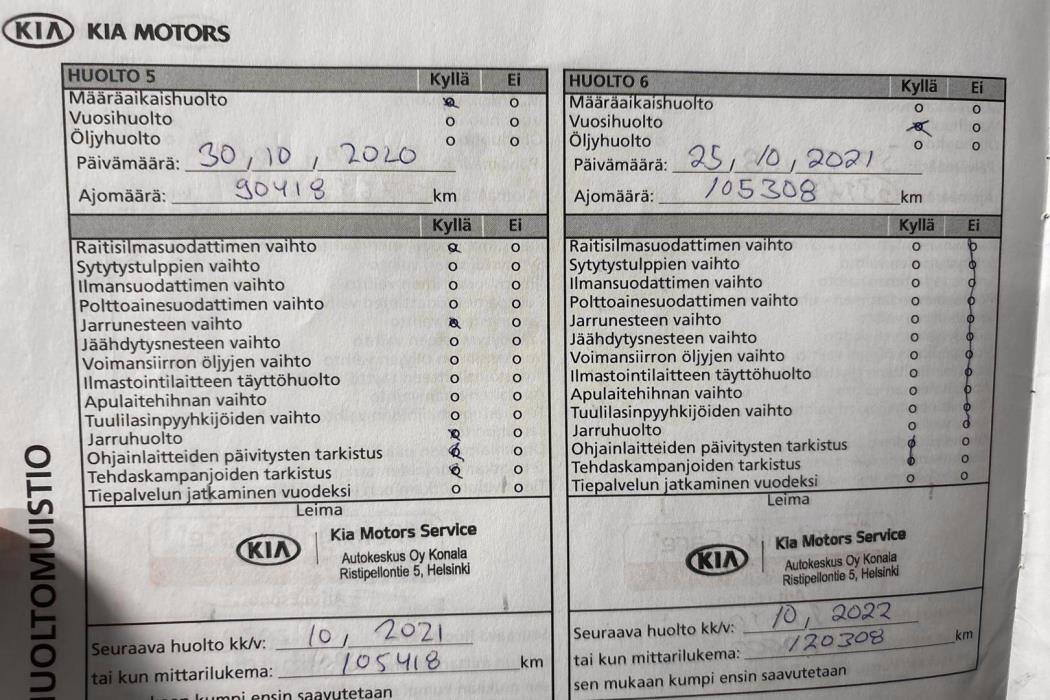 KIA KIA MOTORS
HUOLTO 5 Kyllä Ei
Määräaikaishuolto
Vuosihuolto
Öljyhuolto
Päivämäärä: 30, 10, 2020
Ajomäärä: 90418 km
Kyllä Ei
Raitisilmasuodattimen vaihto
Sytytystulppien vaihto
Ilmansuodattimen vaihto
Polttoainesuodattimen vaihto
Jarrunesteen vaihto
Jäähdytysnesteen vaihto
Voimansiirron öljyjen vaihto
Ilmastointilaitteen täyttöhuolto
Apulaitehihnan vaihto
Tuulilasinpyyhkijöiden vaihto
Jarruhuolto
Ohjainlaitteiden päivitysten tarkistus
Tehdaskampanjoiden tarkistus
Tiepalvelun jatkaminen vuodeksi
Leima
KIA Kia Motors Service
Autokeskus Oy Konala
Ristipellontie 5, Helsinki
Seuraava huolto kk/v: 10, 2021
tai kun mittarilukema: 105418 km
kumpi ensin saavutetaan
HUOLTO 6 Kyllä Ei
Määräaikaishuolto
Vuosihuolto
Öljyhuolto
Päivämäärä: 25, 10, 2021
Ajomäärä: 105308 km
Kyllä Ei
Raitisilmasuodattimen vaihto
Sytytystulppien vaihto
Ilmansuodattimen vaihto
Polttoainesuodattimen vaihto
Jarrunesteen vaihto
Jäähdytysnesteen vaihto
Voimansiirron öljyjen vaihto
Ilmastointilaitteen täyttöhuolto
Apulaitehihnan vaihto
Tuulilasinpyyhkijöiden vaihto
Jarruhuolto
Ohjainlaitteiden päivitysten tarkistus
Tehdaskampanjoiden tarkistus
Tiepalvelun jatkaminen vuodeksi
Leima
KIA Kia Motors Service
Autokeskus Oy Konala
Ristipellontie 5, Helsinki
Seuraava huolto kk/v: 10, 2022
tai kun mittarilukema: 120308 km
sen mukaan kumpi ensin saavutetaan
HUOLTOMUISTIO